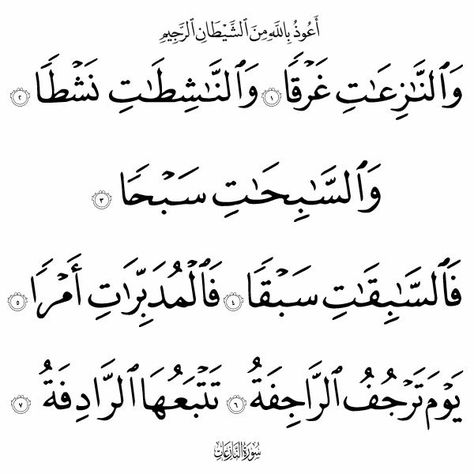 أَعُوذُ بِاللَّهِ مِنَ الشَّيْطَانِ الرَّجِيمِ
وَٱلنَّٰزِعَٰتِ غَرۡقٗا ١ وَٱلنَّٰشِطَٰتِ نَشۡطٗا ٢
وَٱلسَّٰبِحَٰتِ سَبۡحٗا ٣
فَٱلسَّٰبِقَٰتِ سَبۡقٗا ٤ فَٱلۡمُدَبِّرَٰتِ أَمۡرٗا ٥
يَوۡمَ تَرۡجُفُ ٱلرَّاجِفَةُ ٦ تَتۡبَعُهَا ٱلرَّادِفَةُ ٧
سُورَةُ النَّازِعَاتِ